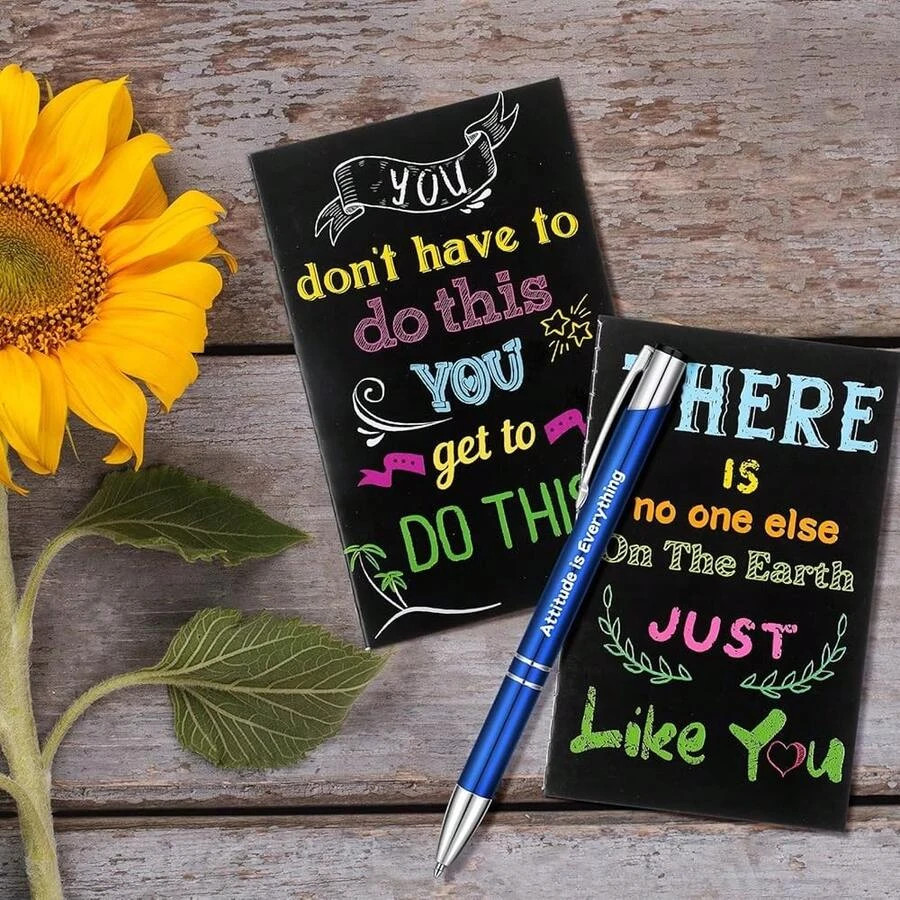 YOU
don't have to
do this
YOU
get to
DO THIS
Attitude is Everything
THERE
IS
no one else
On The Earth
JUST
Like You